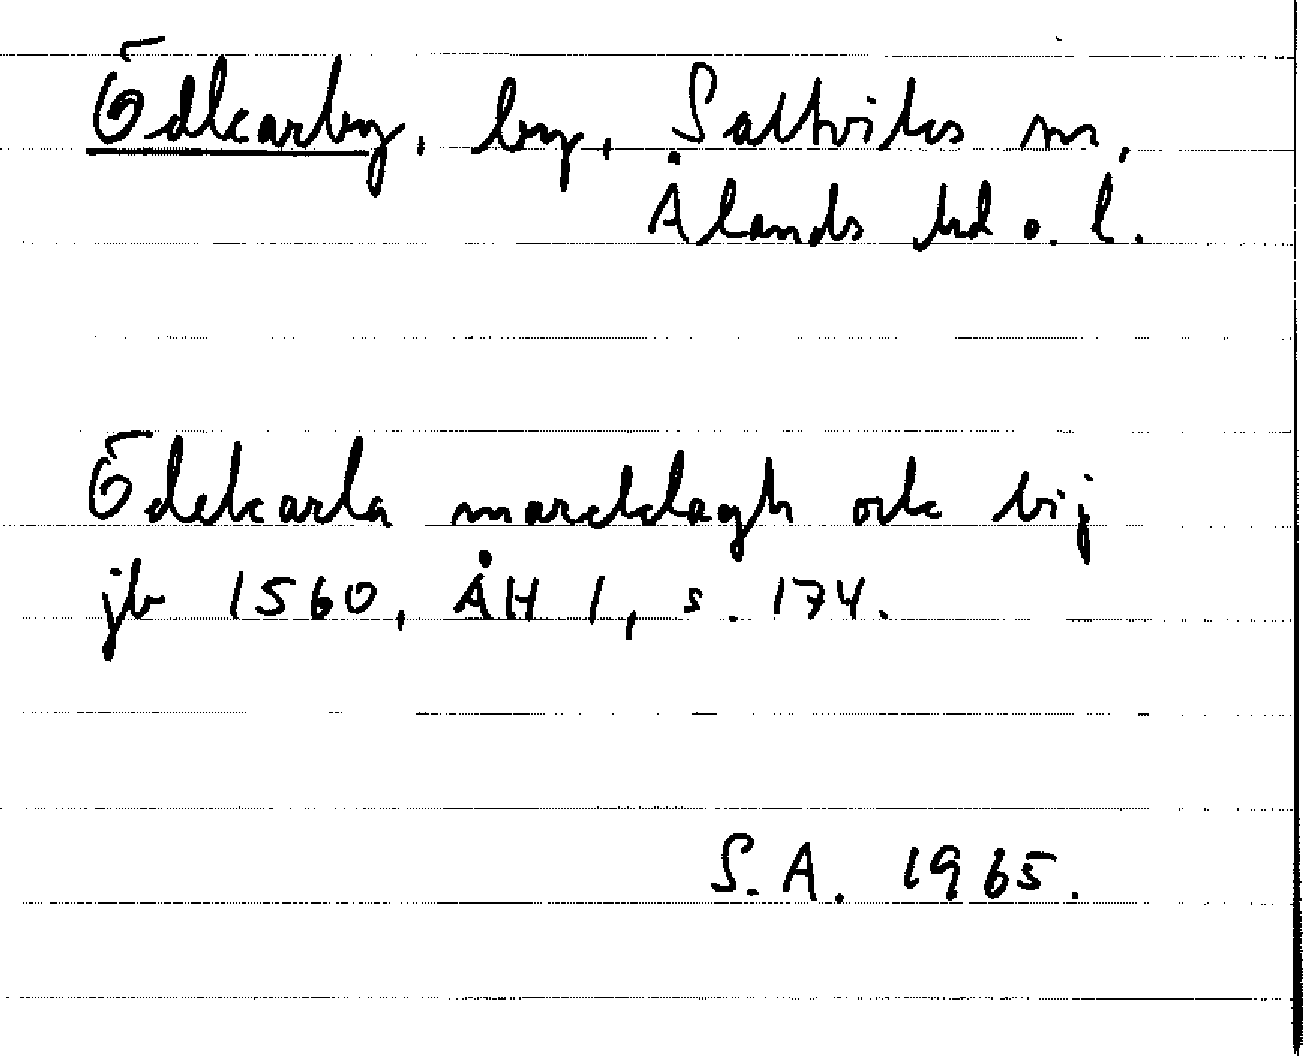 Ödkarby, by, Saltviks sn,
Ålands hd o. l.
Ödekarla marcklagh ock bij
jb 1560, ÅH 1, s. 174.
S.A. 1965.